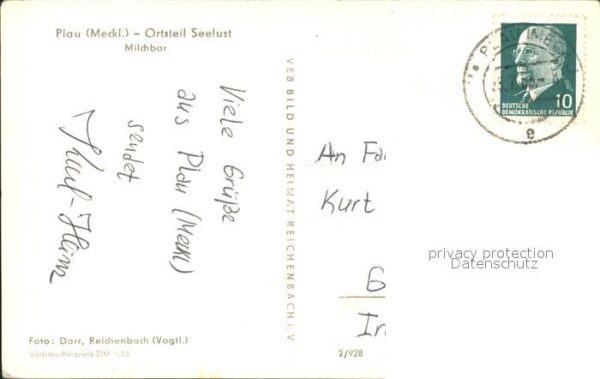 Plau (Meckl.) – Ortsteil Seelust
Milchbar
Viele Grüße
aus Plau (Meckl)
sendet
Karl-Heinz
VEB BILD UND HEIMAT REICHENBACH i. V.
PLAU (MECKL)
e
DEUTSCHE
DEMOKRATISCHE REPUBLIK
10
An Fa
Kurt
G
In
privacy protection
Datenschutz
Foto: Darr, Reichenbach (Vogtl.)
Verbraucherpreis DM -,15
2/928